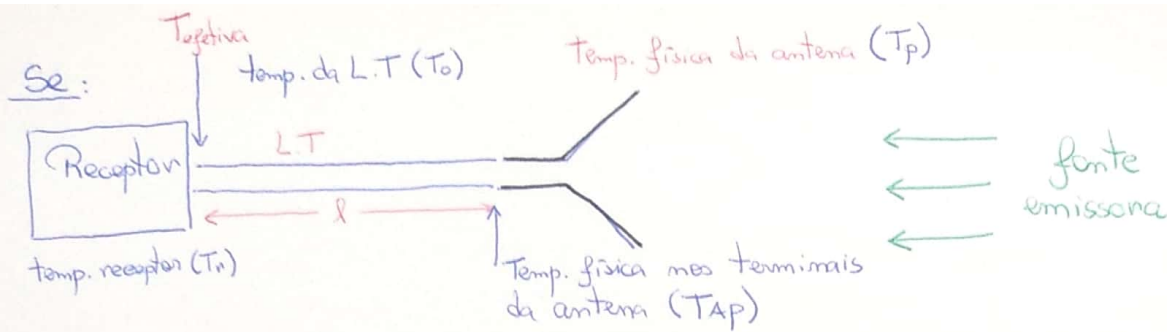 Tefetiva
Se:
temp. da L.T (To)
Temp. física da antena (Tp)
Receptor
L.T
fonte
emissora
l
temp. receptor (Tr)
Temp. física nos terminais
da antena (TAP)